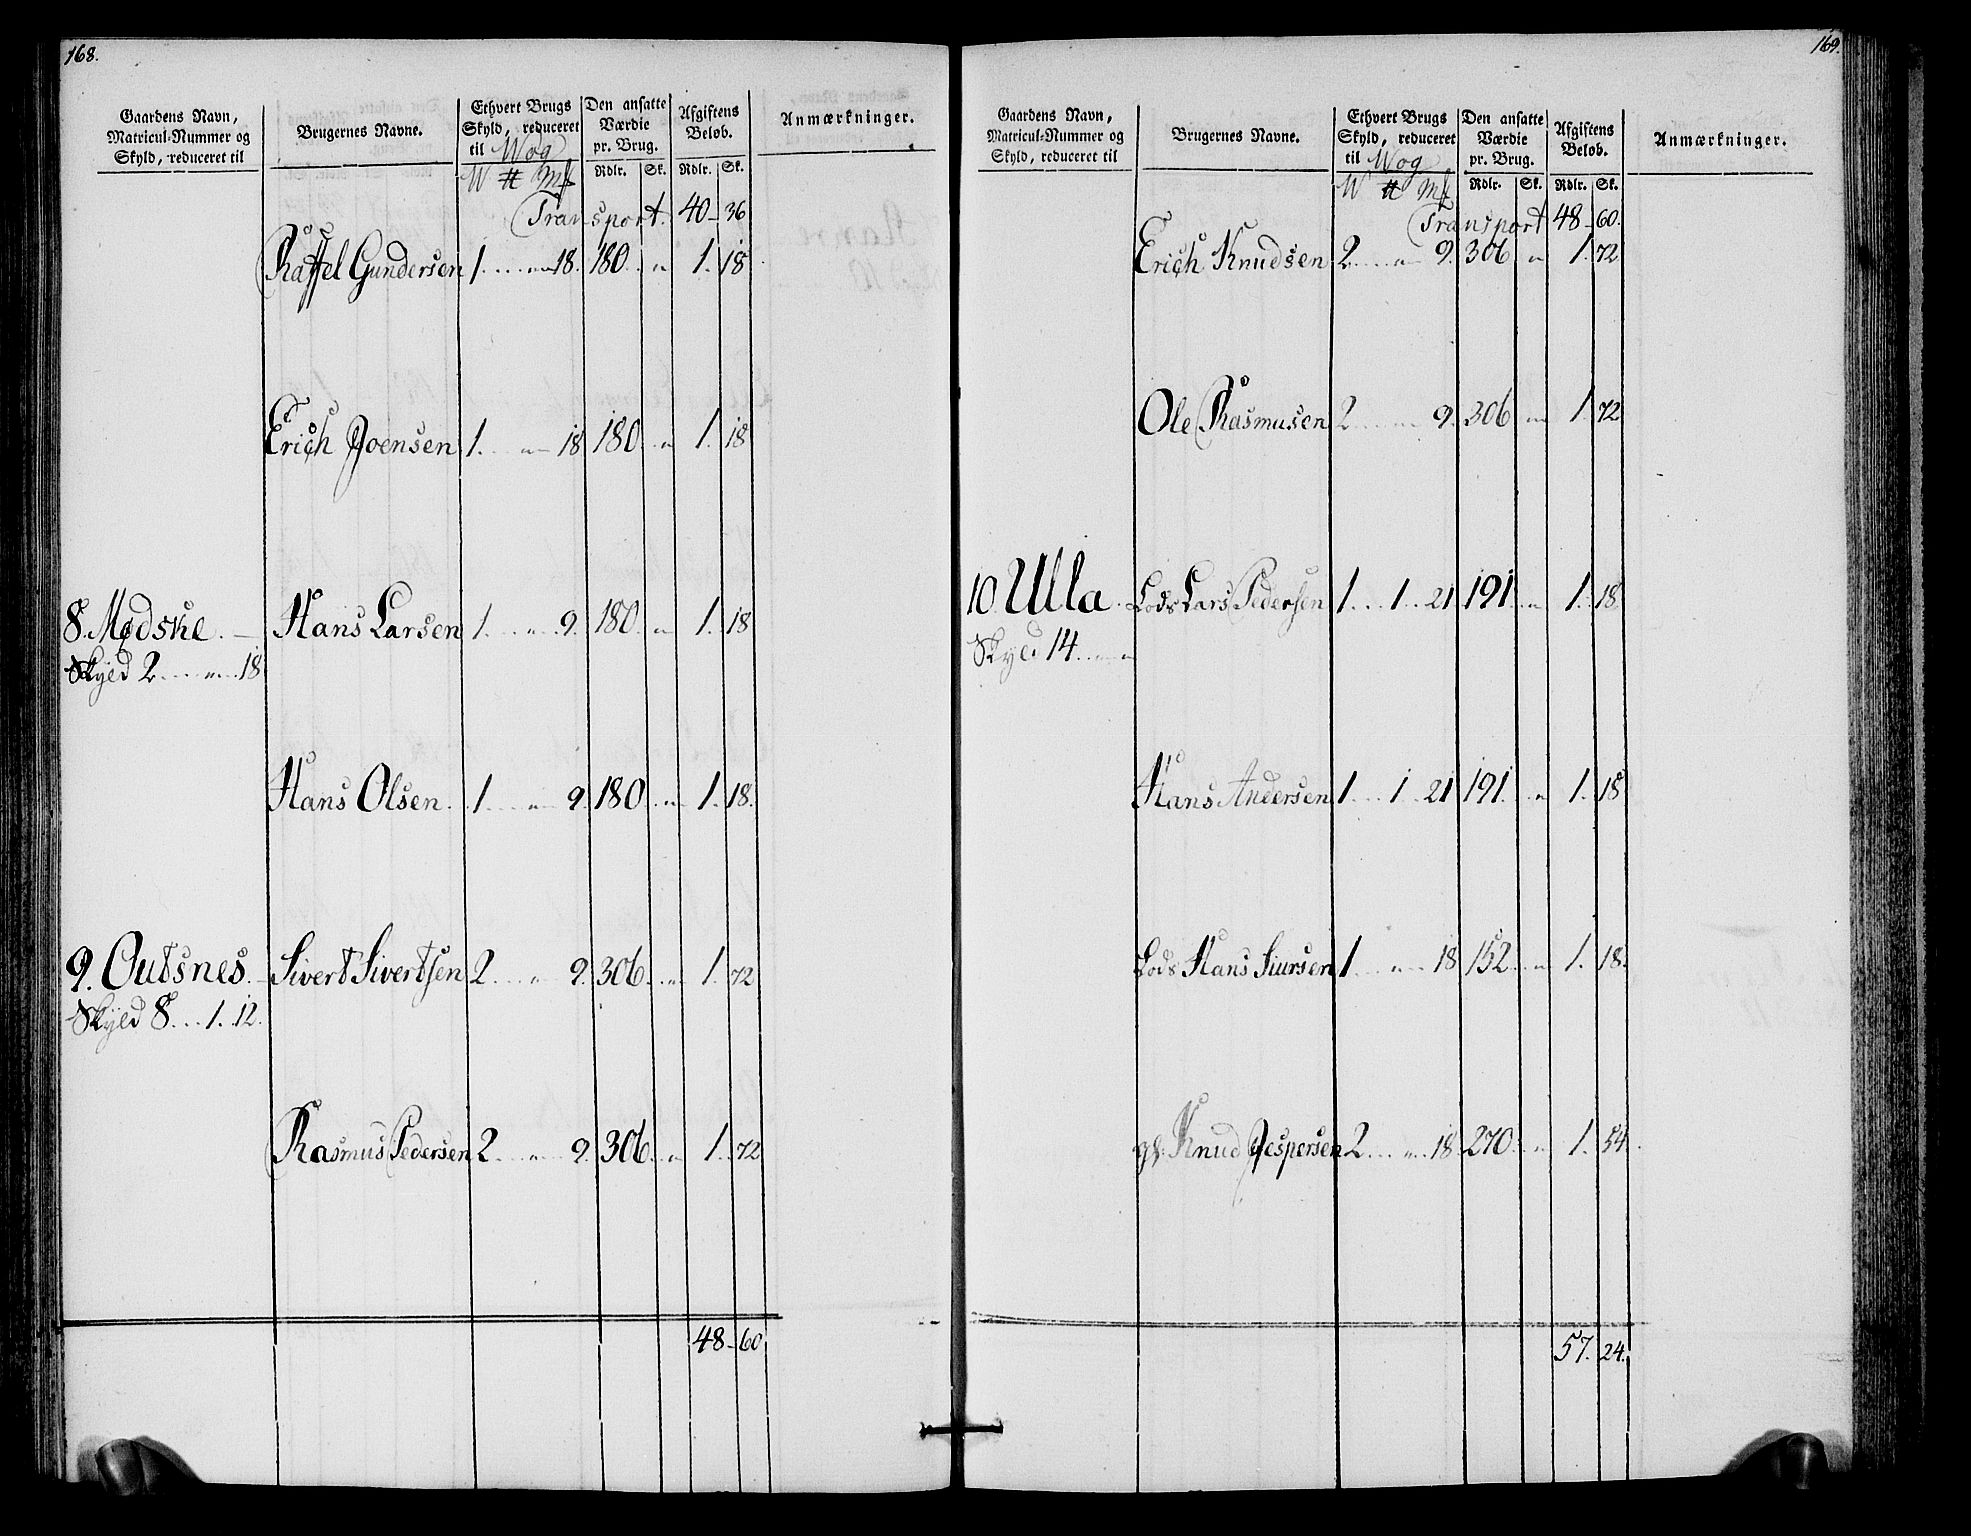 168.
Gaardens Navn, Matricul-Nummer og Skyld, reduceret til
Brugernes Navne.
Ethvert Brugs Skyld, reduceret til Wog
W # Mk
Den ansatte Værdie pr. Brug.
Rdlr. Sk.
Afgiftens Beløb.
Rdlr. Sk.
Anmærkninger.
Transport. 40 - 36
Raffel Gundersen 1 . . . „ 18. 180 . „ 1. 18
Erich Joensen 1. . . „ 18 180 . „ 1. 18
8. Mødske. Hans Larsen 1. . . „ 9. 180 . „ 1. 18
Skyld 2 . . . „ . 18
Hans Olsen. 1. . . „ 9. 180 . „ 1. 18.
9. Outsnes. Sivert Sivertsen 2. . . „ 9. 306 . „ 1. 72
Skyld 8. . . 1. 12.
Rasmus Pedersen 2. . . „ 9. 306 . „ 1. 72
48 - 60
169.
Gaardens Navn, Matricul-Nummer og Skyld, reduceret til
Brugernes Navne.
Ethvert Brugs Skyld, reduceret til Wog
W # Mk
Den ansatte Værdie pr. Brug.
Rdlr. Sk.
Afgiftens Beløb.
Rdlr. Sk.
Anmærkninger.
Transport 48 - 60.
Erich Knudsen 2. . . „ 9. 306 „ 1. 72
Ole Rasmusen 2. . . „ 9. 306 „ 1. 72
10. Ulla. Lods Lars Pedersen 1. . . 1. . 21 191. . „ 1. 18
Skyld 14. . . „
Hans Andersen 1. . . 1 . 21 191. . „ 1. 18
Lods Hans Siursen 1. . . „ 18 152. . „ 1. 18.
gl. Knud Jespersen 2. . . „ . 18 270. . „ 1. 54.
57. 24.